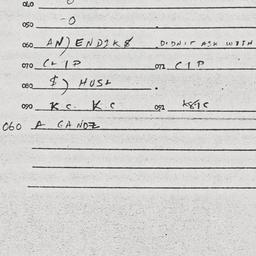 040 0
050 -0
060 AN) ENDIKS DIDNIT ASK WITH
070 CLIP 072 CIP
080 $) HUSL .
090 K.C. K.C 092 K&IC
060 A GANDZ